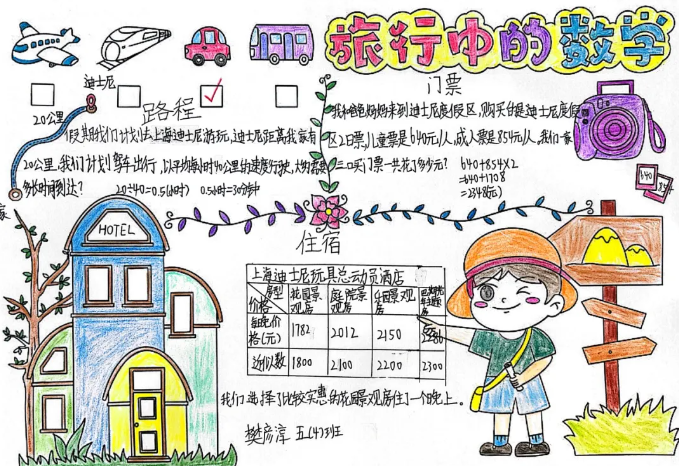 旅行中的数学
迪士尼
20公里
家
路程
假期我们计划去上海迪士尼游玩,迪士尼距离我家有
20公里,我们计划驾车出行,以平均每小时40公里的速度行驶,大约需要
多长时间到达?
20÷40=0.5(小时) 0.5小时=30分钟
门票
我和爸爸妈妈来到迪士尼度假区,购买的是迪士尼度假
区2日票,儿童票是640元/人,成人票是854元/人,我们一家
三口买门票一共花了多少元?
640+854×2
=640+1708
=2348(元)
640
854
HOTEL
住宿
上海迪士尼玩具总动员酒店
房型
价格
花园景观房
庭院景观房
乐园景观房
每晚价格(元) 1782 2012 2150 2280
近似数 1800 2100 2200 2300
我们选择了比较实惠的花园景观房住了一个晚上。
樊彦淳 五(4)班